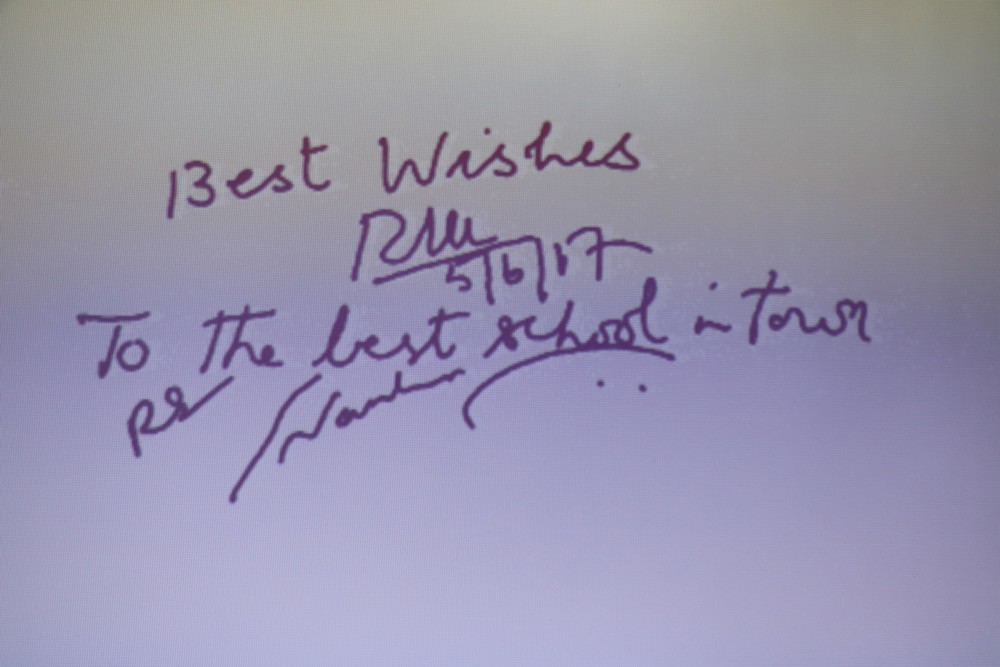 Best Wishes
5/6/17
To the best school in town